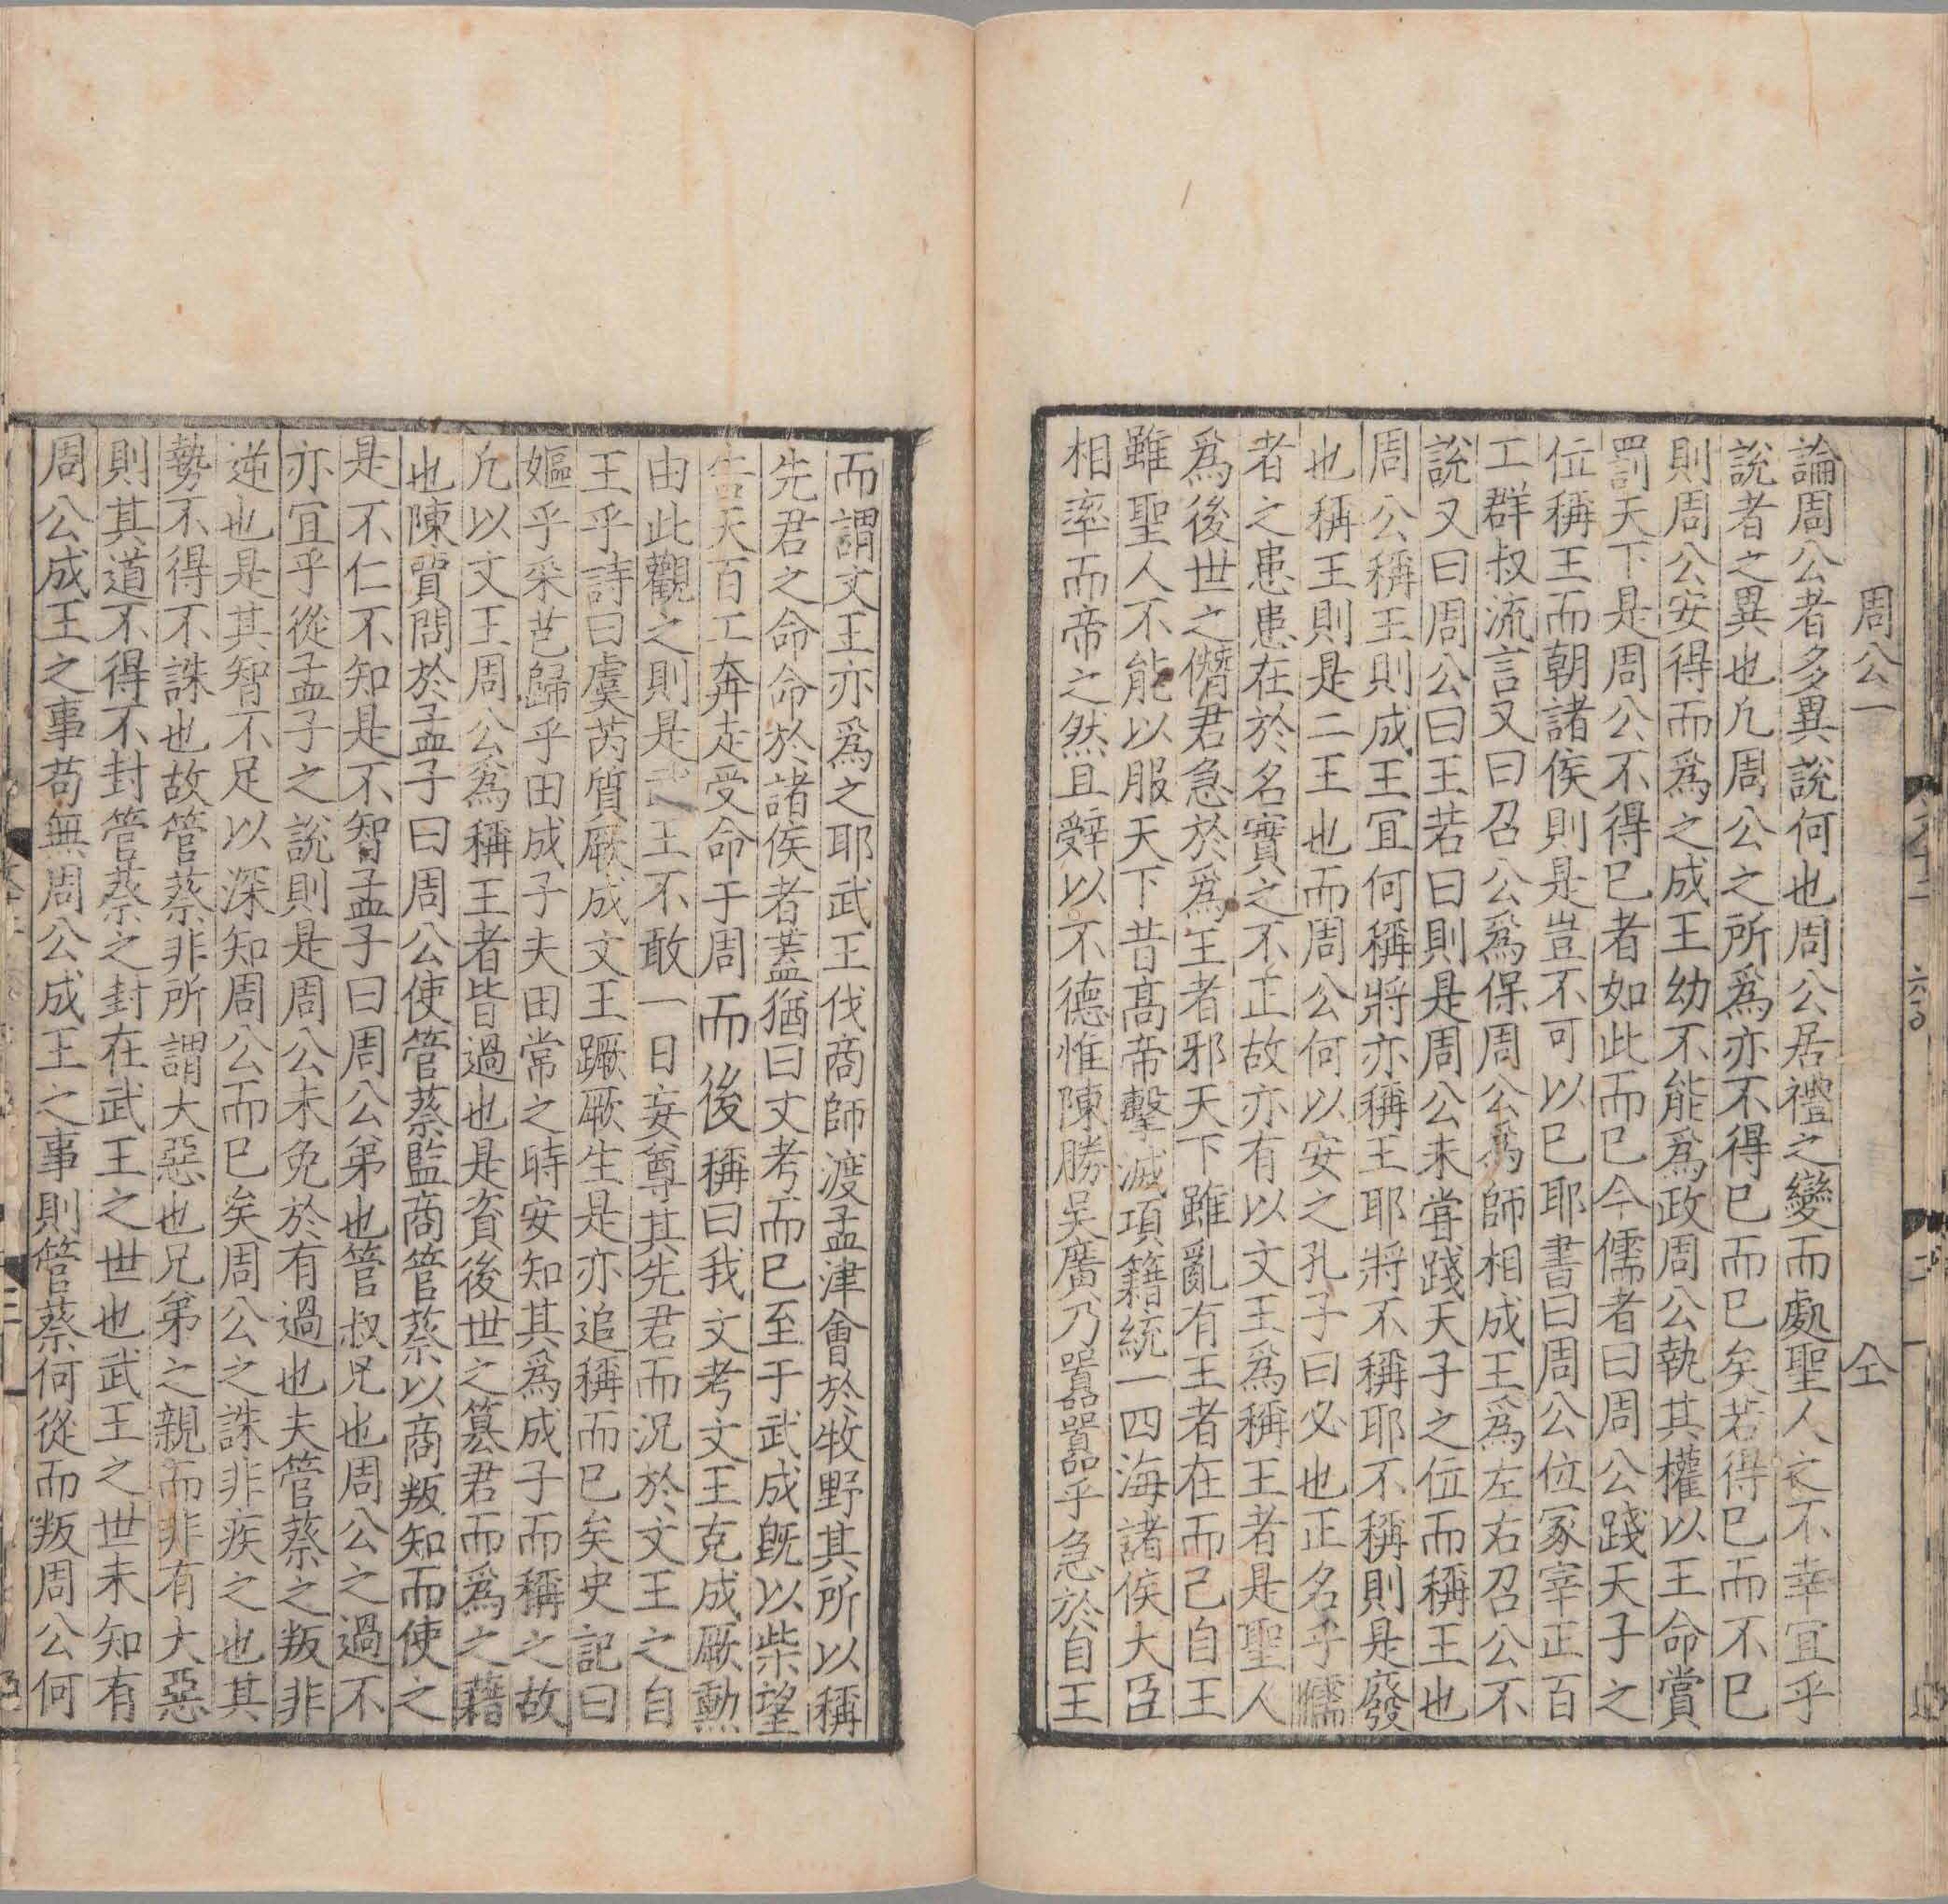 周公一 仝
論周公者多異說何也周公居禮之變而處聖人之不幸宜乎
說者之異也凢周公之所爲亦不得已而已矣若得已而不已
則周公安得而爲之成王幼不能爲政周公執其權以王命賞
罰天下是周公不得已者如此而已今儒者曰周公踐天子之
位稱王而朝諸侯則是豈不可以已耶書曰周公位冢宰正百
工群叔流言又曰召公爲保周公爲師相成王爲左右召公不
說又曰周公曰王若曰則是周公未甞踐天子之位而稱王也
周公稱王則成王冝何稱將亦稱王耶將不稱耶不稱則是廢
也稱王則是二王也而周公何以安之孔子曰必也正名乎儒
者之患患在於名實之不正故亦有以文王爲稱王者是聖人
爲後世之僭君急於爲王者邪天下雖亂有王者在而己自王
雖聖人不能以服天下昔髙帝擊滅項籍統一四海諸侯大臣
相率而帝之然且辭以不德惟陳勝吴廣乃囂囂乎急於自王
而謂文王亦爲之耶武王伐商師渡孟津會於牧野其所以稱
先君之命命於諸侯者蓋猶曰文考而已至于武成旣以柴望
告天百工奔走受命于周而後稱曰我文考文王克成厥勲
由此觀之則是武王不敢一日妄尊其先君而況於文王之自
王乎詩曰虞芮質厥成文王蹶厥生是亦追稱而已矣史記曰
嫗乎采芑歸乎田成子夫田常之時安知其爲成子而稱之故
凢以文王周公爲稱王者皆過也是資後世之簒君而爲之藉
也陳賈問於孟子曰周公使管蔡監商管蔡以商叛知而使之
是不仁不知是不智孟子曰周公弟也管叔兄也周公之過不
亦宜乎從孟子之說則是周公未免於有過也夫管蔡之叛非
逆也是其智不足以深知周公而已矣周公之誅非疾之也其
勢不得不誅也故管蔡非所謂大惡也兄弟之親而非有大惡
則其道不得不封管蔡之封在武王之世也武王之世未知有
周公成王之事苟無周公成王之事則管蔡何從而叛周公何